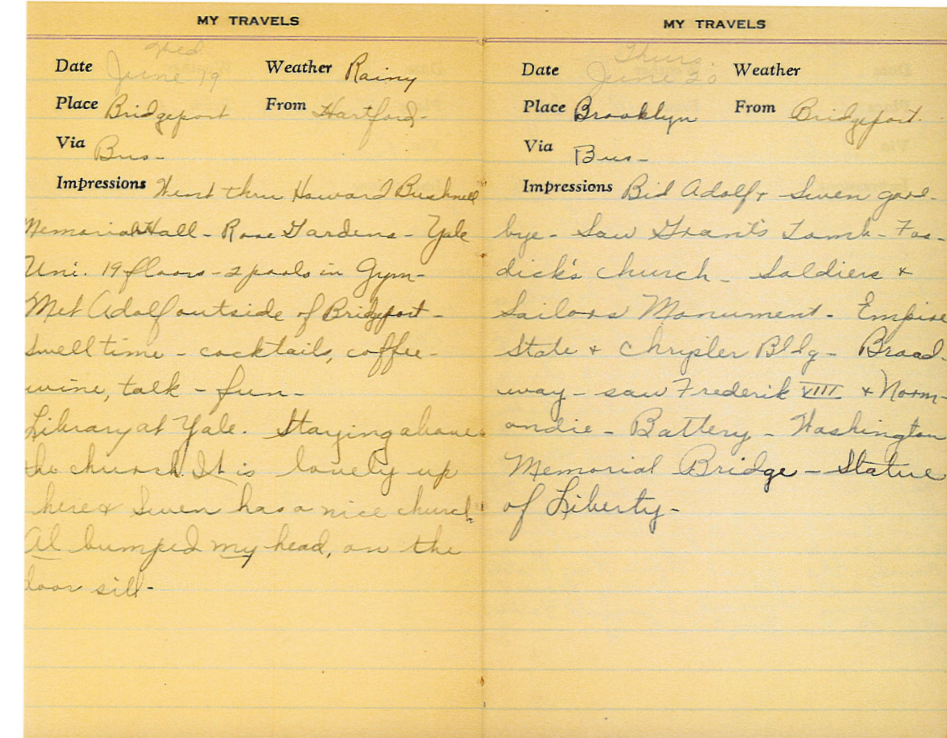 MY TRAVELS
Wed
Date June 19 Weather Rainy
Place Bridgeport From Hartford-
Via Bus-
Impressions Went thru Howard Bushnell
Memorial Hall - Rose Gardens - Yale
Uni. 19 floors - 2 pools in Gym-
Met Adolf outside of Bridgeport-
Swell time - cocktails, coffee-
wine, talk - fun-
Library at Yale. Staying above
he church. It is lovely up
here & Swen has a nice church.
Al bumped my head, on the
door sill-
MY TRAVELS
Thurs.
Date June 20 Weather
Place Brooklyn From Bridgeport.
Via Bus-
Impressions Bid Adolf & Swen good-
bye- Saw Grant's Tomb- Fos-
dick's church- Soldiers &
Sailors Monument- Empire
State & Chrysler Bldg- Broad-
way- saw Frederik VIII & Norm-
andie- Battery- Washington
Memorial Bridge- Statue
of Liberty-